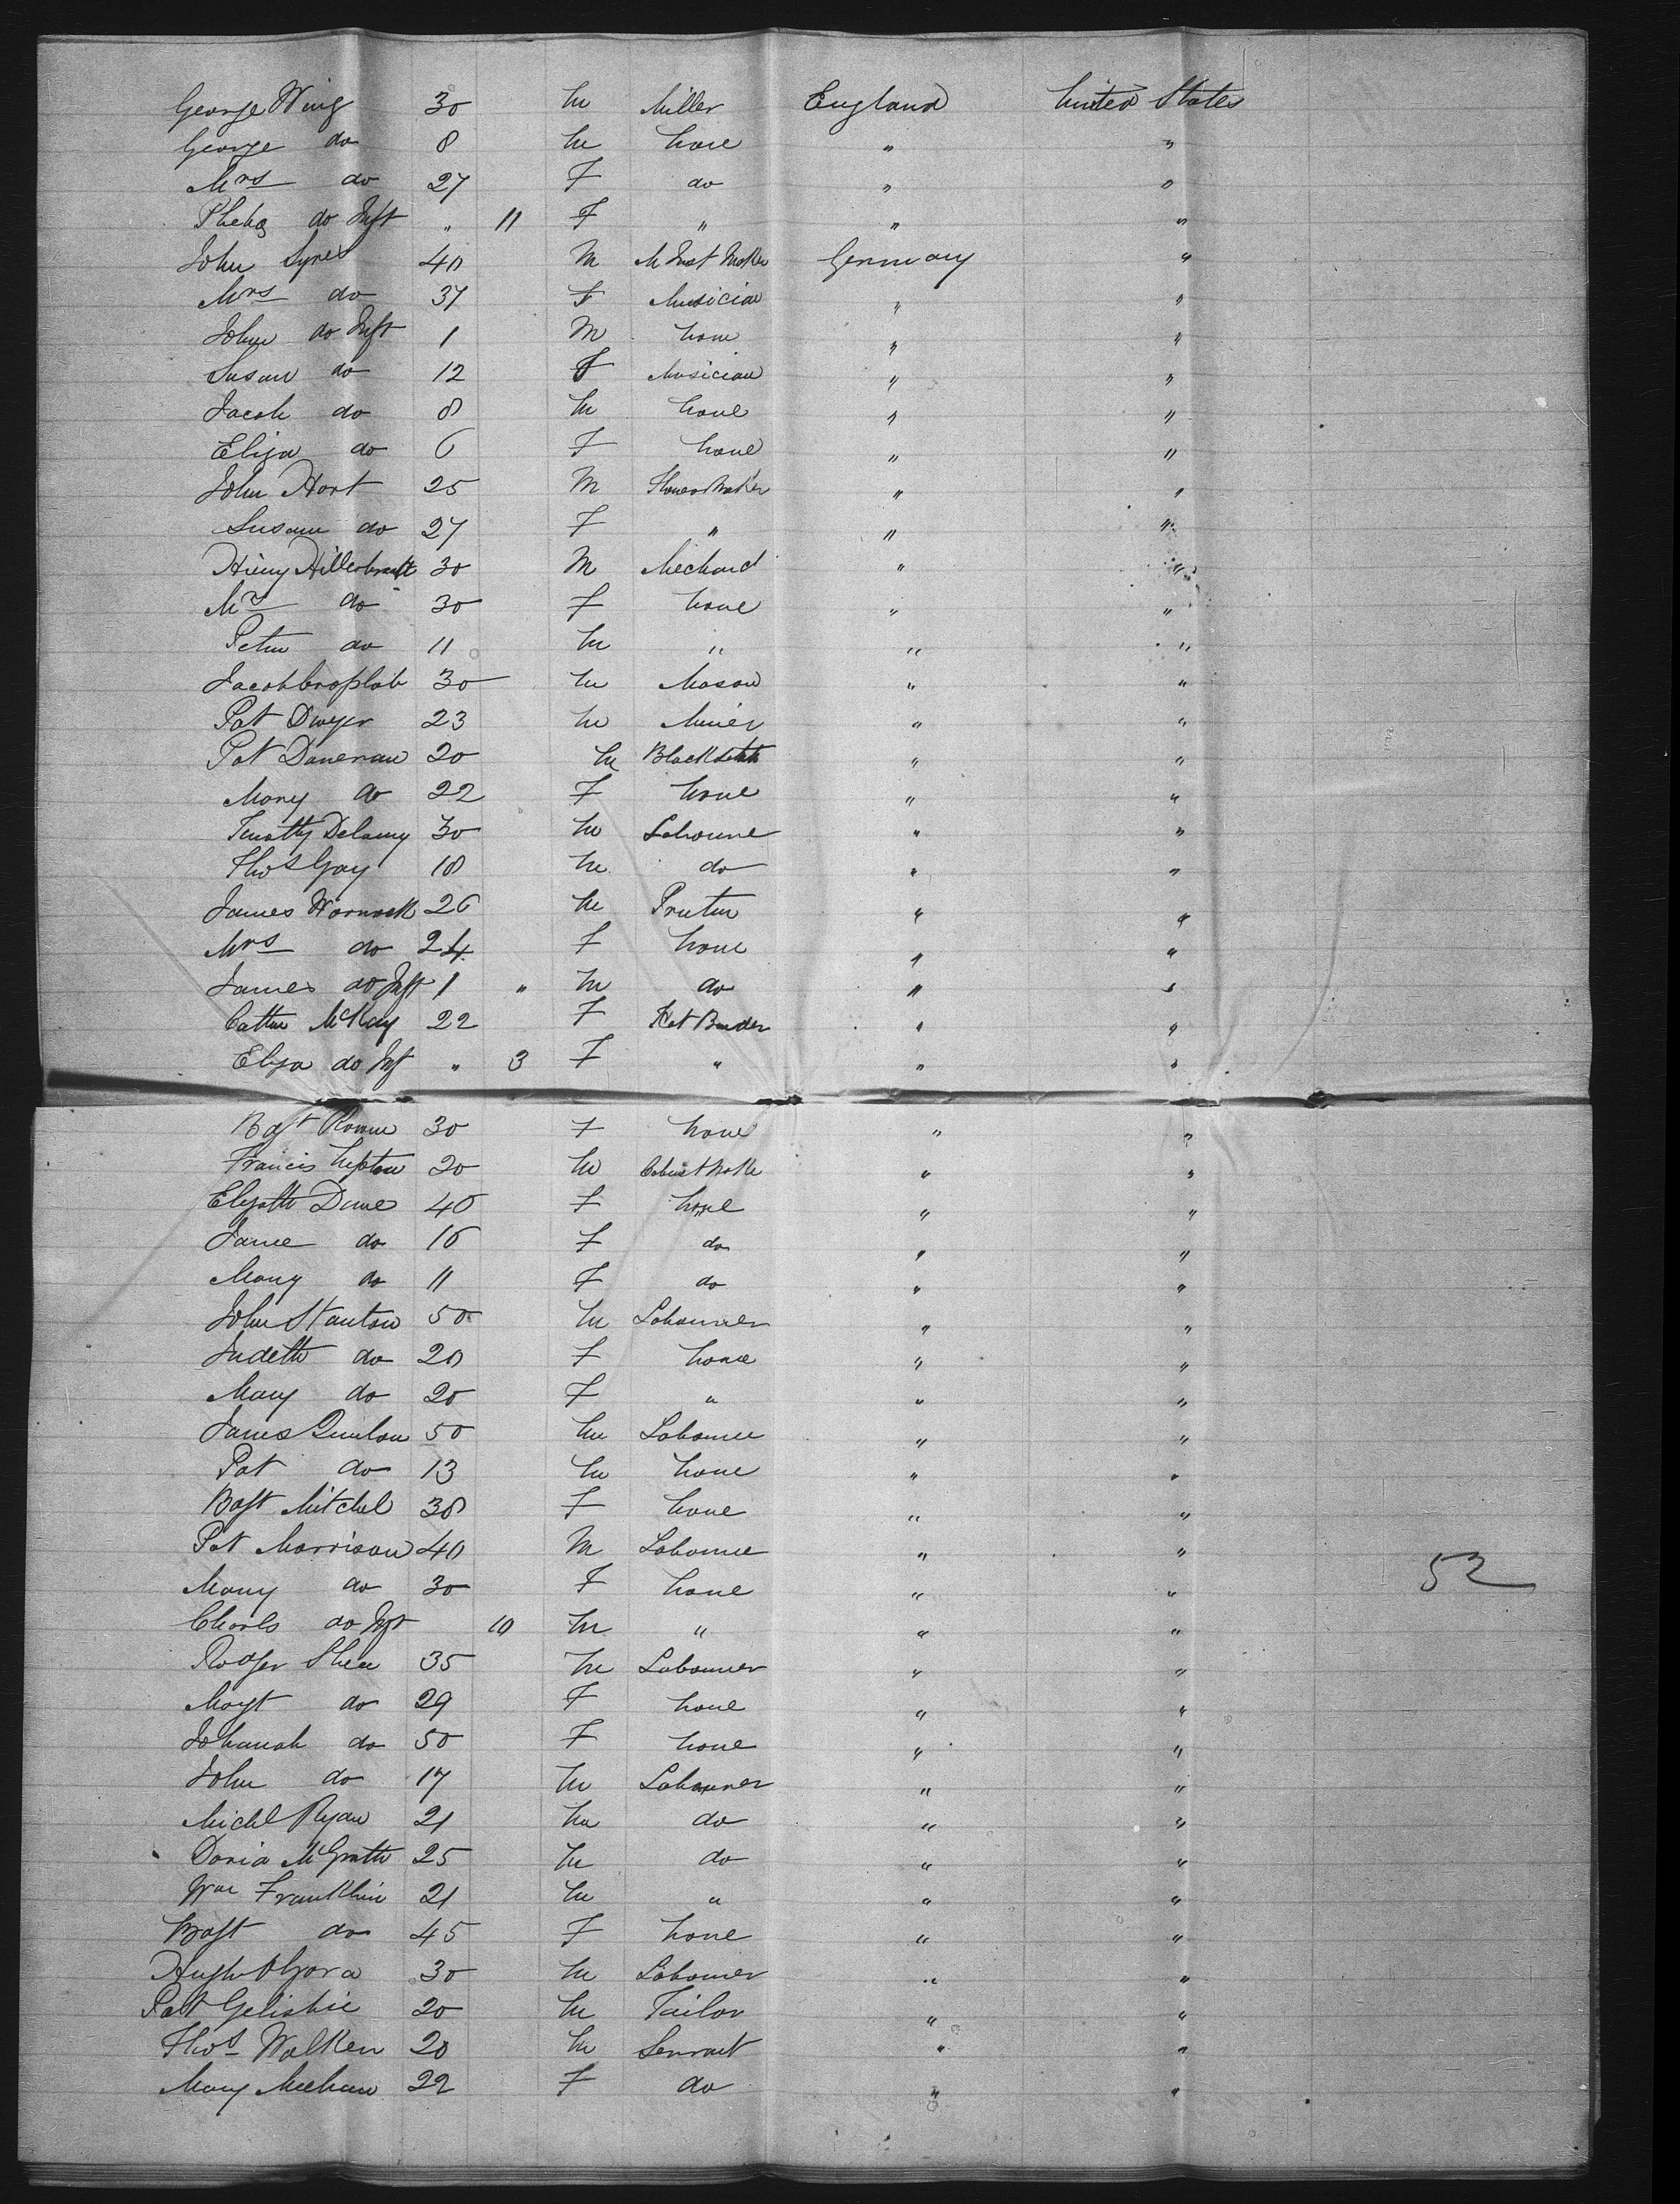 George Wing 30 M Miller England United States
George do 8 M None " "
Mrs do 27 F do " "
Phebe do Inft " 11 F " " "
John Syres 40 M M Inst Maker Germany "
Mrs do 37 F Musician " "
John do Inft 1 M None " "
Susan do 12 F Musician " "
Jacob do 8 M None " "
Eliza do 6 F None " "
John Hart 25 M Flower Maker " "
Susan do 27 F " " "
Henry Hillerbrandt 30 M " "
Mrs do 30 F None " "
Peter do 11 M " " "
Jacob 30 M Mason " "
Pat Dwyer 23 M Miner " "
Pat Doneran 20 M Blacksmith " "
Mary do 22 F None " "
Timothy Delaney 30 M Labourer " "
Thos Gay 18 M do " "
James Warnock 26 M Printer " "
Mrs do 24 F None " "
James do Inft 1 " M do " "
Cathn McKay 22 F Hat Binder " "
Eliza do Inf " 3 F " " "
Bagt 30 F None " "
Francis Lupton 20 M Cabinet Make " "
Elizath Dune 40 F None " "
Jane do 16 F do " "
Mary do 11 F do " "
John Stanton 50 M Labourer " "
Judeth do 20 F None " "
Mary do 20 F " " "
James Quinlan 50 M Labourer " "
Pat do 13 M None " "
Bagt Mitchel 30 F None " "
Pat Morrison 40 M Labourer " "
Mary do 30 F None " " 52
Charls do Inft 10 M " " "
Rodger Shea 35 M Labourer " "
Magt do 29 F None " "
Johanah do 50 F None " "
John do 17 M Labourer " "
Michl Ryan 21 M do " "
McGrath 25 M do " "
Wm Franklin 21 M " " "
Bagt do 45 F None " "
Hugh OGara 30 M Labourer " "
Pat 20 M Tailor " "
Thos Walken 20 M Servant " "
Mary Meehan 22 F do " "